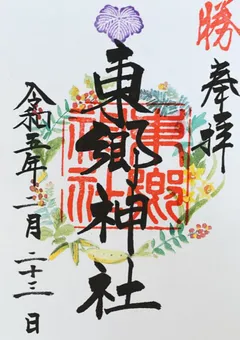 勝
奉拝
東郷神社
東郷神社
令和五年二月二十三日